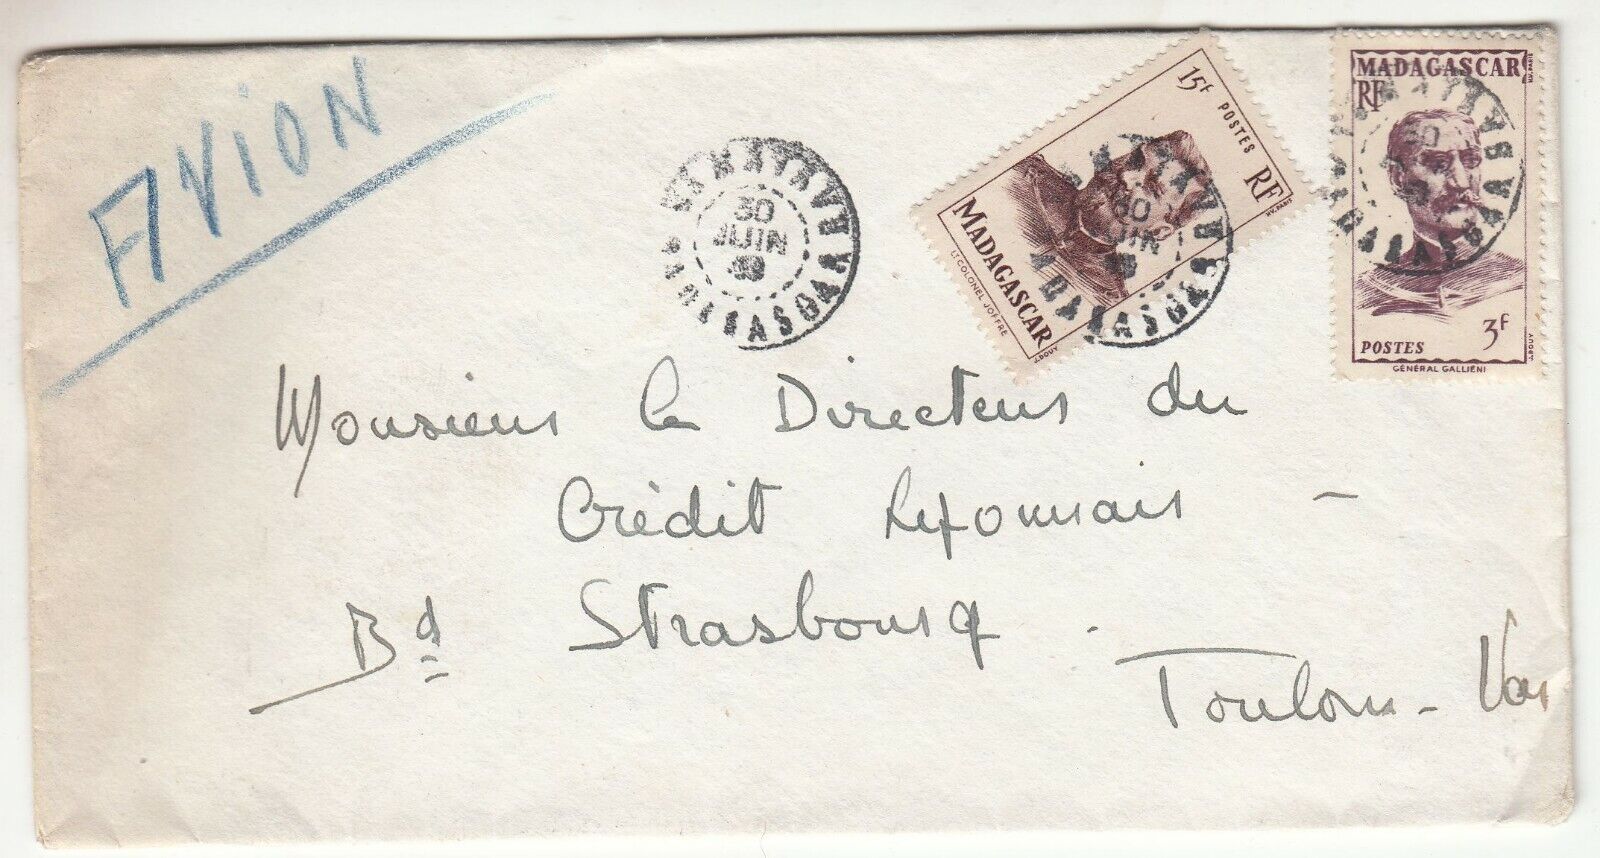 AVION
30
JUIN
MADAGASCAR
15F POSTES RF
MADAGASCAR
LT COLONEL JOFFRE
J. DOUY
HV. PARIS
30
JUIN
MADAGASCAR
RF
HV. PARIS
3F
POSTES
J. DOUY
GÉNÉRAL GALLIÉNI
Monsieur le Directeur du
Crédit Lyonnais -
Bd Strasbourg.
Toulon - Var